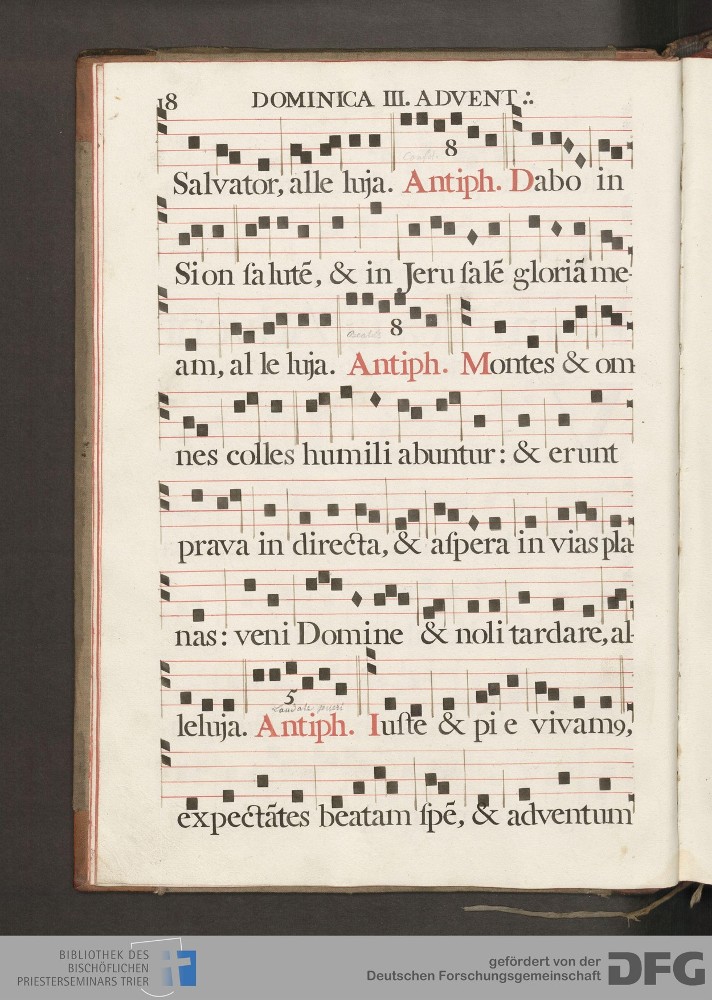 18 DOMINICA III. ADVENT.:.
8
Salvator, alle luja. Antiph. Dabo in
Sion ſalutē, & in Jeruſalē gloriā me-
8
am, al le luja. Antiph. Montes & om-
nes colles humili abuntur: & erunt
prava in directa, & aſpera in vias pla-
nas: veni Domine & noli tardare, al-
5
Laudate pueri
leluja. Antiph. Iuſte & pi e vivamꝰ,
expectātes beatam ſpē, & adventum
BIBLIOTHEK DES
BISCHÖFLICHEN
PRIESTERSEMINARS TRIER
gefördert von der
Deutschen Forschungsgemeinschaft
DFG